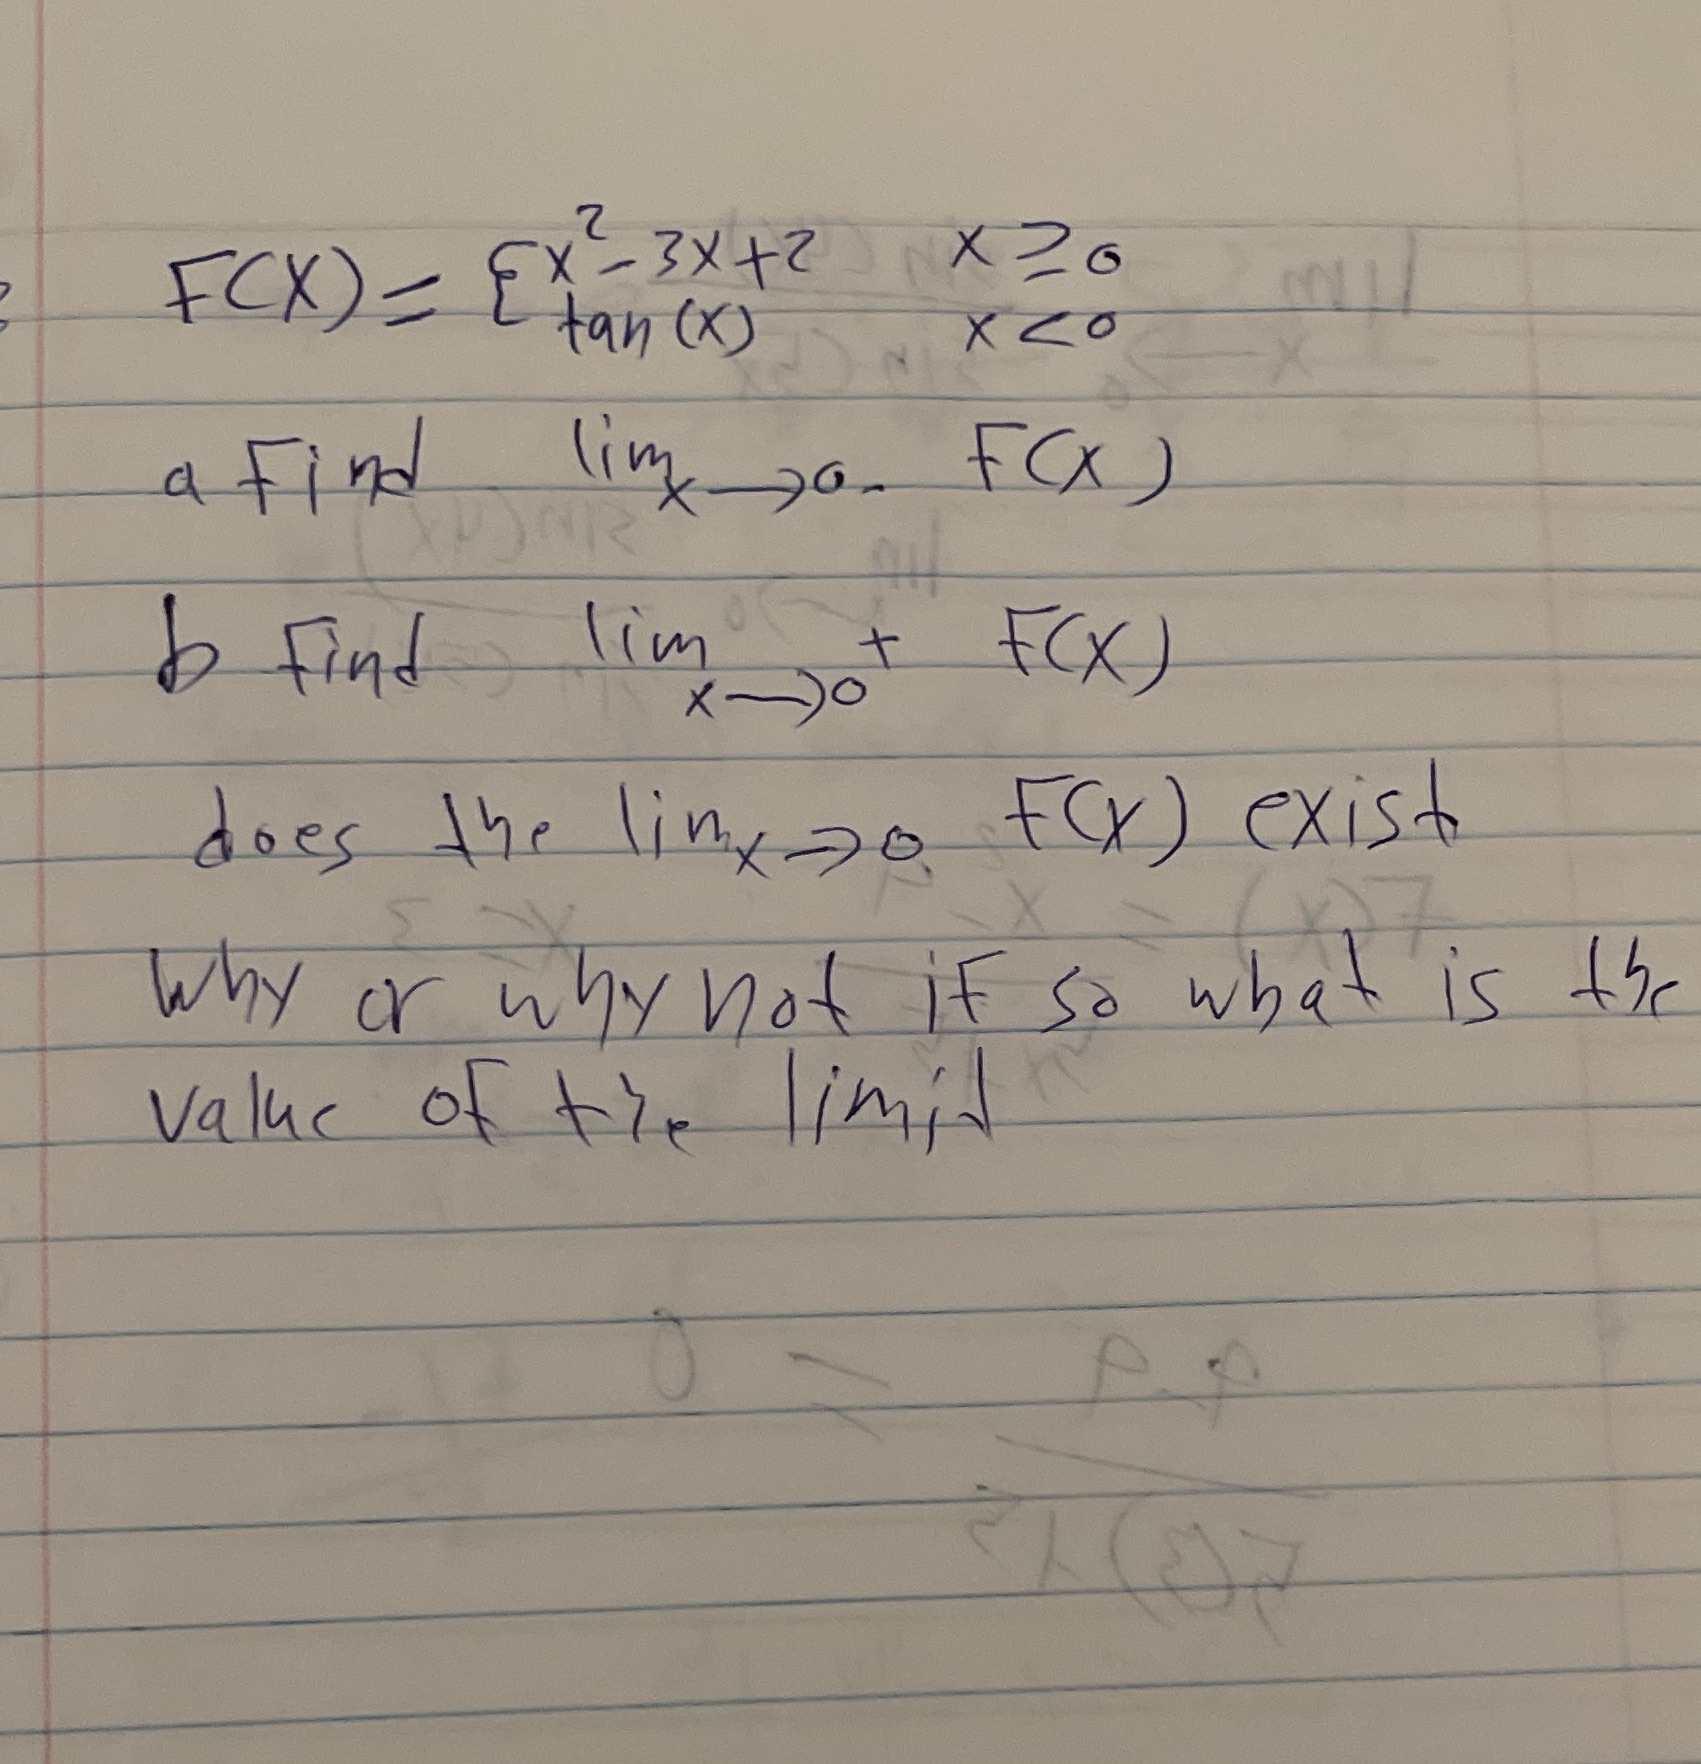 F(X) = { x² - 3x + 2 x ≥ 0
tan(x) x < 0
a Find lim x→0- F(X)
b Find lim x→0+ F(X)
does the lim x→0 F(X) exist
Why or why not if so what is the
value of the limit